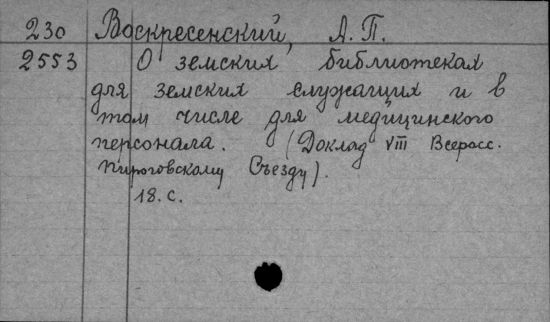 230 Воскресенский, А. П.
2553 О земских библиотеках
для земских служащих и в
том числе для медицинского
персонала. (Доклад VIII Всеросс.
Пироговскому Съезду).
18. с.